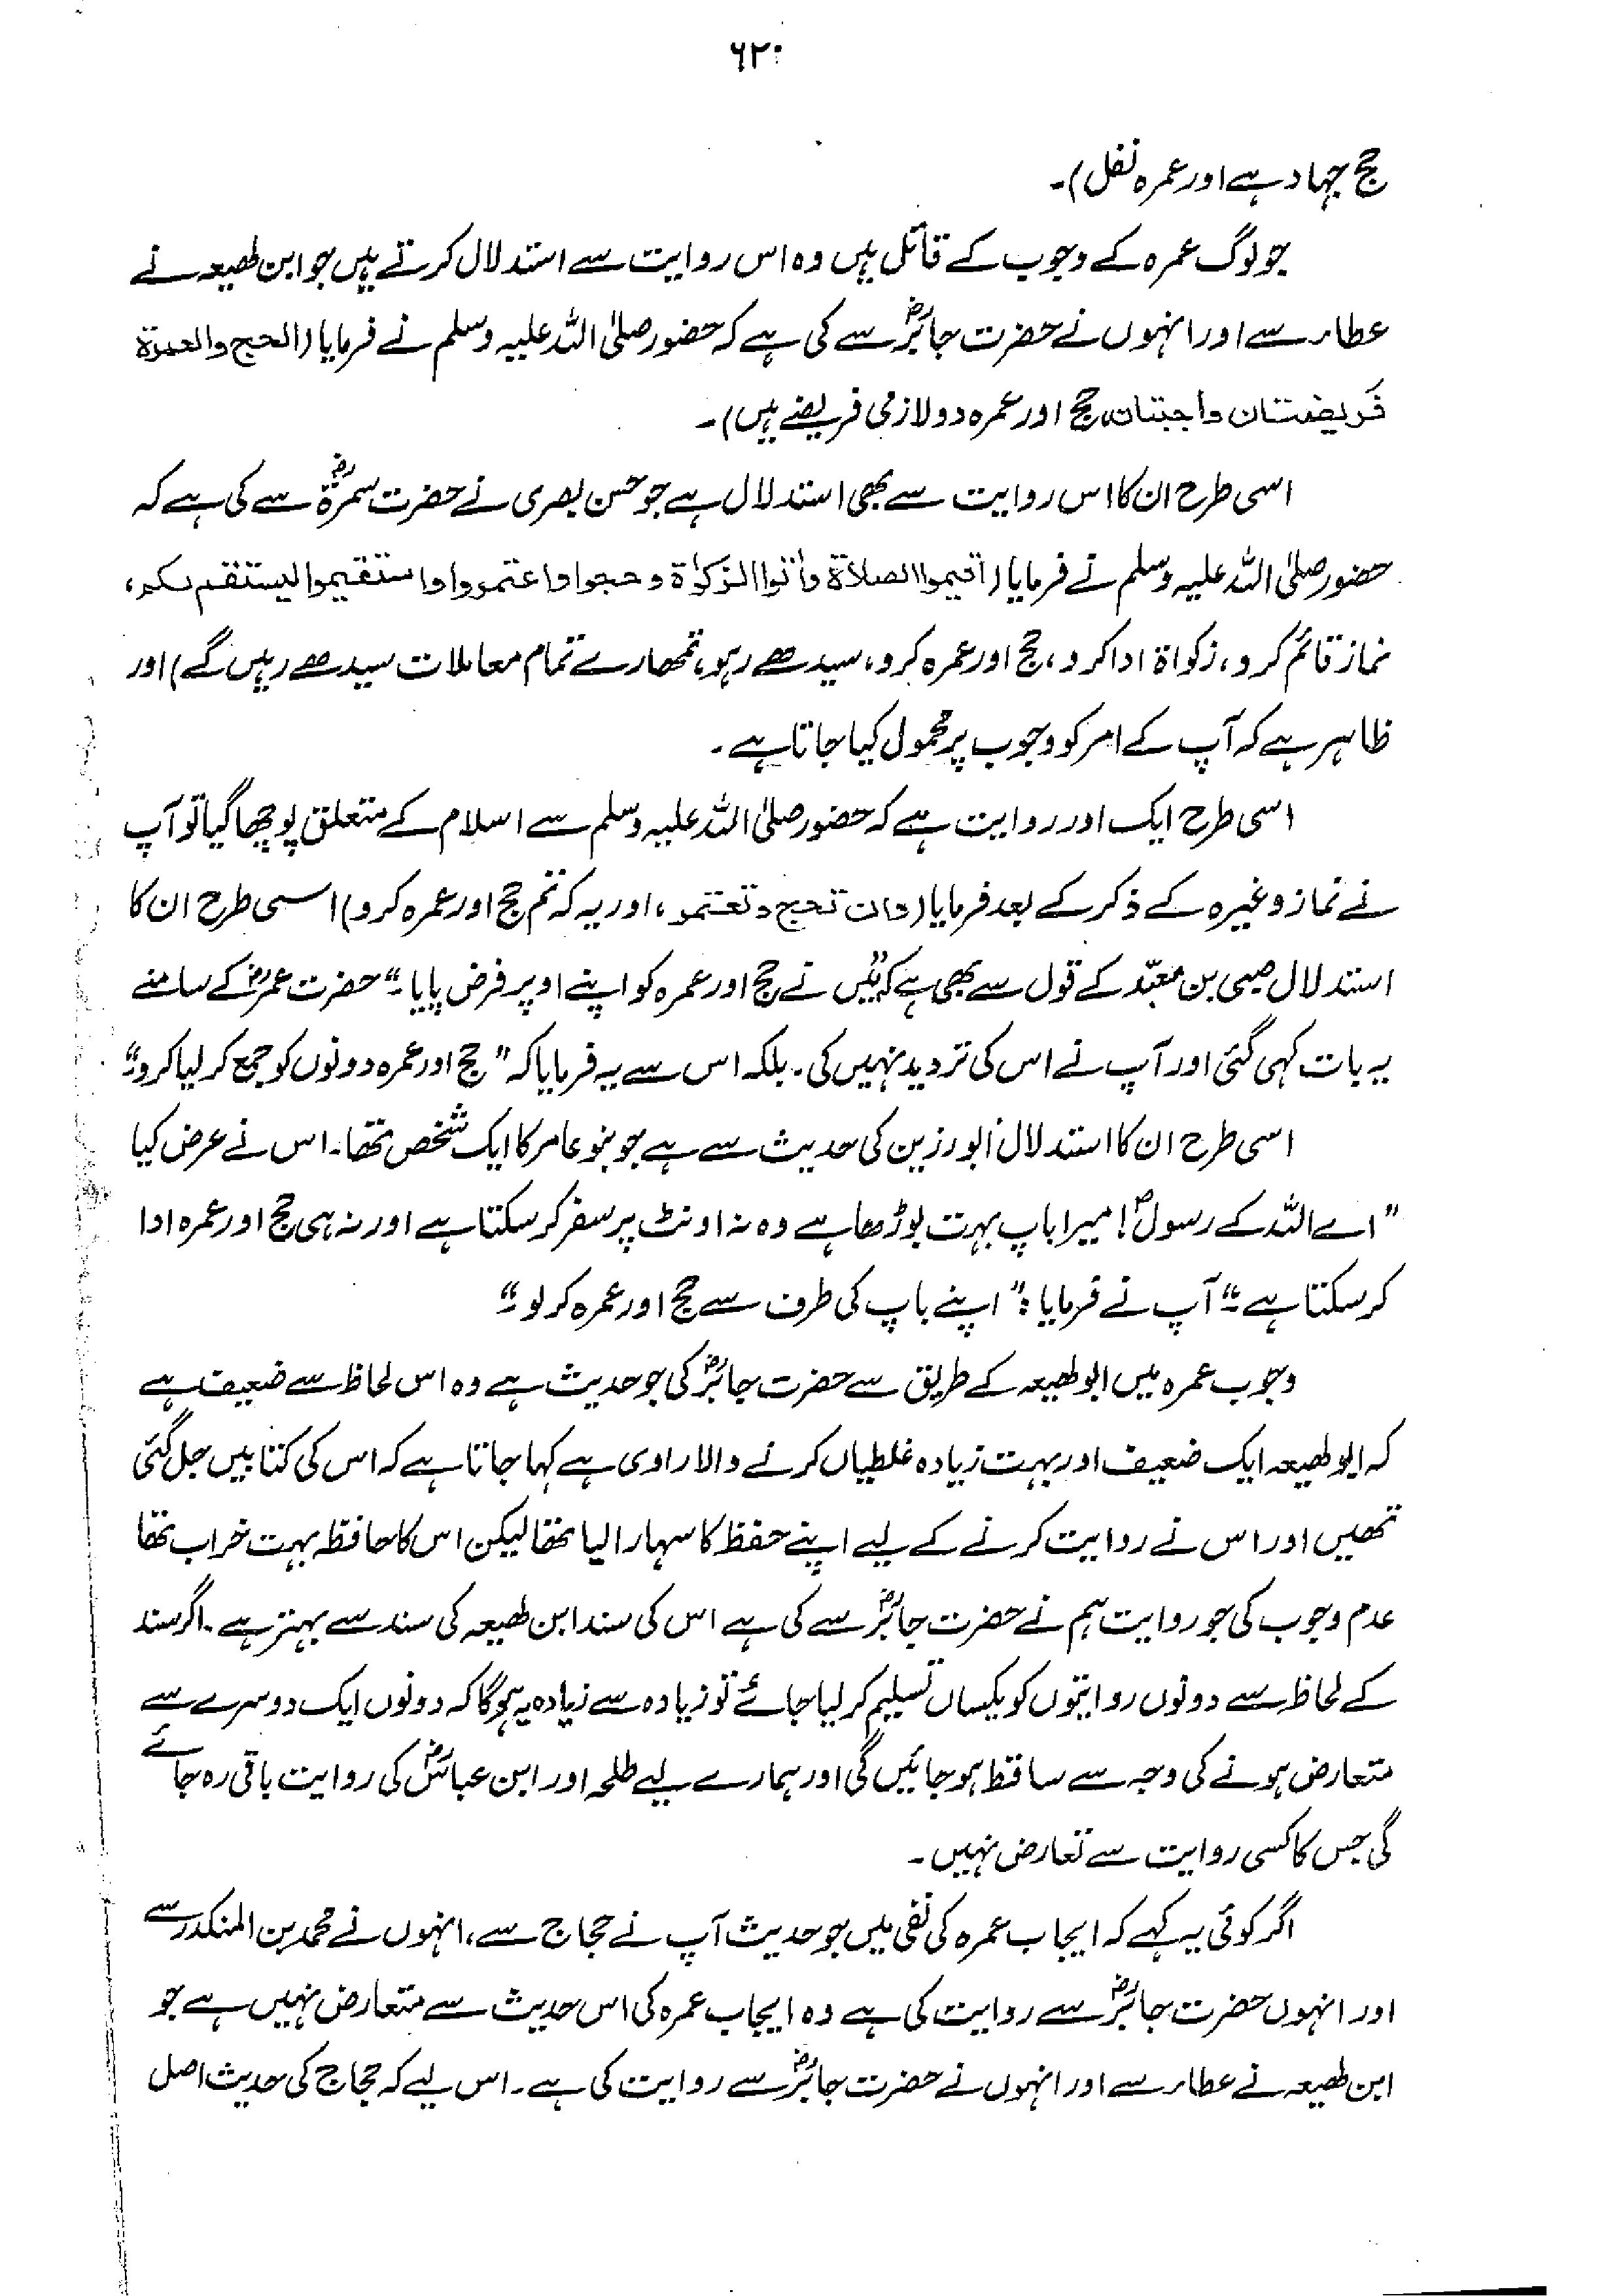 ۶۲۰
حج جہاد ہے اور عمرہ نفل)۔
جو لوگ عمرہ کے وجوب کے قائل ہیں وہ اس روایت سے استدلال کرتے ہیں جو ابن لھیعہ نے
عطاء سے اور انہوں نے حضرت جابرؓ سے کی ہے کہ حضور صلی اللہ علیہ وسلم نے فرمایا (الحج والعمرۃ
فریضتان واجبتان، حج اور عمرہ دو لازمی فریضے ہیں)۔
اسی طرح ان کا اس روایت سے بھی استدلال ہے جو حسن بصری نے حضرت سمرۃؓ سے کی ہے کہ
حضور صلی اللہ علیہ وسلم نے فرمایا (اقیموا الصلاۃ وأتوا الزکواۃ وحجوا واعتمروا واستقیموا لیستقم لکم،
نماز قائم کرو، زکواۃ ادا کرو، حج اور عمرہ کرو، سیدھے رہو، تمھارے تمام معاملات سیدھے رہیں گے) اور
ظاہر ہے کہ آپ کے امر کو وجوب پر محمول کیا جاتا ہے۔
اسی طرح ایک اور روایت ہے کہ حضور صلی اللہ علیہ وسلم سے اسلام کے متعلق پوچھا گیا تو آپ
نے نماز وغیرہ کے ذکر کے بعد فرمایا (وان تحج وتعتمر، اور یہ کہ تم حج اور عمرہ کرو) اسی طرح ان کا
استدلال صبی بن معبّد کے قول سے بھی ہے کہ "میں نے حج اور عمرہ کو اپنے اوپر فرض پایا۔" حضرت عمرؓ کے سامنے
یہ بات کہی گئی اور آپ نے اس کی تردید نہیں کی۔ بلکہ اس سے یہ فرمایا کہ "حج اور عمرہ دونوں کو جمع کر لیا کرو۔"
اسی طرح ان کا استدلال ابورزین کی حدیث سے ہے جو بنو عامر کا ایک شخص تھا۔ اس نے عرض کیا
"اے اللہ کے رسولؐ! میرا باپ بہت بوڑھا ہے وہ نہ اونٹ پر سفر کر سکتا ہے اور نہ ہی حج اور عمرہ ادا
کر سکتا ہے۔" آپ نے فرمایا: "اپنے باپ کی طرف سے حج اور عمرہ کر لو۔"
وجوب عمرہ میں ابو لھیعہ کے طریق سے حضرت جابرؓ کی جو حدیث ہے وہ اس لحاظ سے ضعیف ہے
کہ ابو لھیعہ ایک ضعیف اور بہت زیادہ غلطیاں کرنے والا راوی ہے کہا جاتا ہے کہ اس کی کتابیں جل گئی
تھیں اور اس نے روایت کرنے کے لیے اپنے حفظ کا سہارا لیا تھا لیکن اس کا حافظہ بہت خراب تھا
عدم وجوب کی جو روایت ہم نے حضرت جابرؓ سے کی ہے اس کی سند ابن لھیعہ کی سند سے بہتر ہے۔ اگر سند
کے لحاظ سے دونوں روایتوں کو یکساں تسلیم کر لیا جائے تو زیادہ سے زیادہ یہ ہوگا کہ دونوں ایک دوسرے سے
متعارض ہونے کی وجہ سے ساقط ہو جائیں گی اور ہمارے لیے طلحہ اور ابن عباسؓ کی روایت باقی رہ جائے
گی جس کا کسی روایت سے تعارض نہیں۔
اگر کوئی یہ کہے کہ ایجاب عمرہ کی نفی میں جو حدیث آپ نے حجاج سے، انہوں نے محمد بن المنکدر سے
اور انہوں حضرت جابرؓ سے روایت کی ہے وہ ایجاب عمرہ کی اس حدیث سے متعارض نہیں ہے جو
ابن لھیعہ نے عطاء سے اور انہوں نے حضرت جابرؓ سے روایت کی ہے۔ اس لیے کہ حجاج کی حدیث اصل